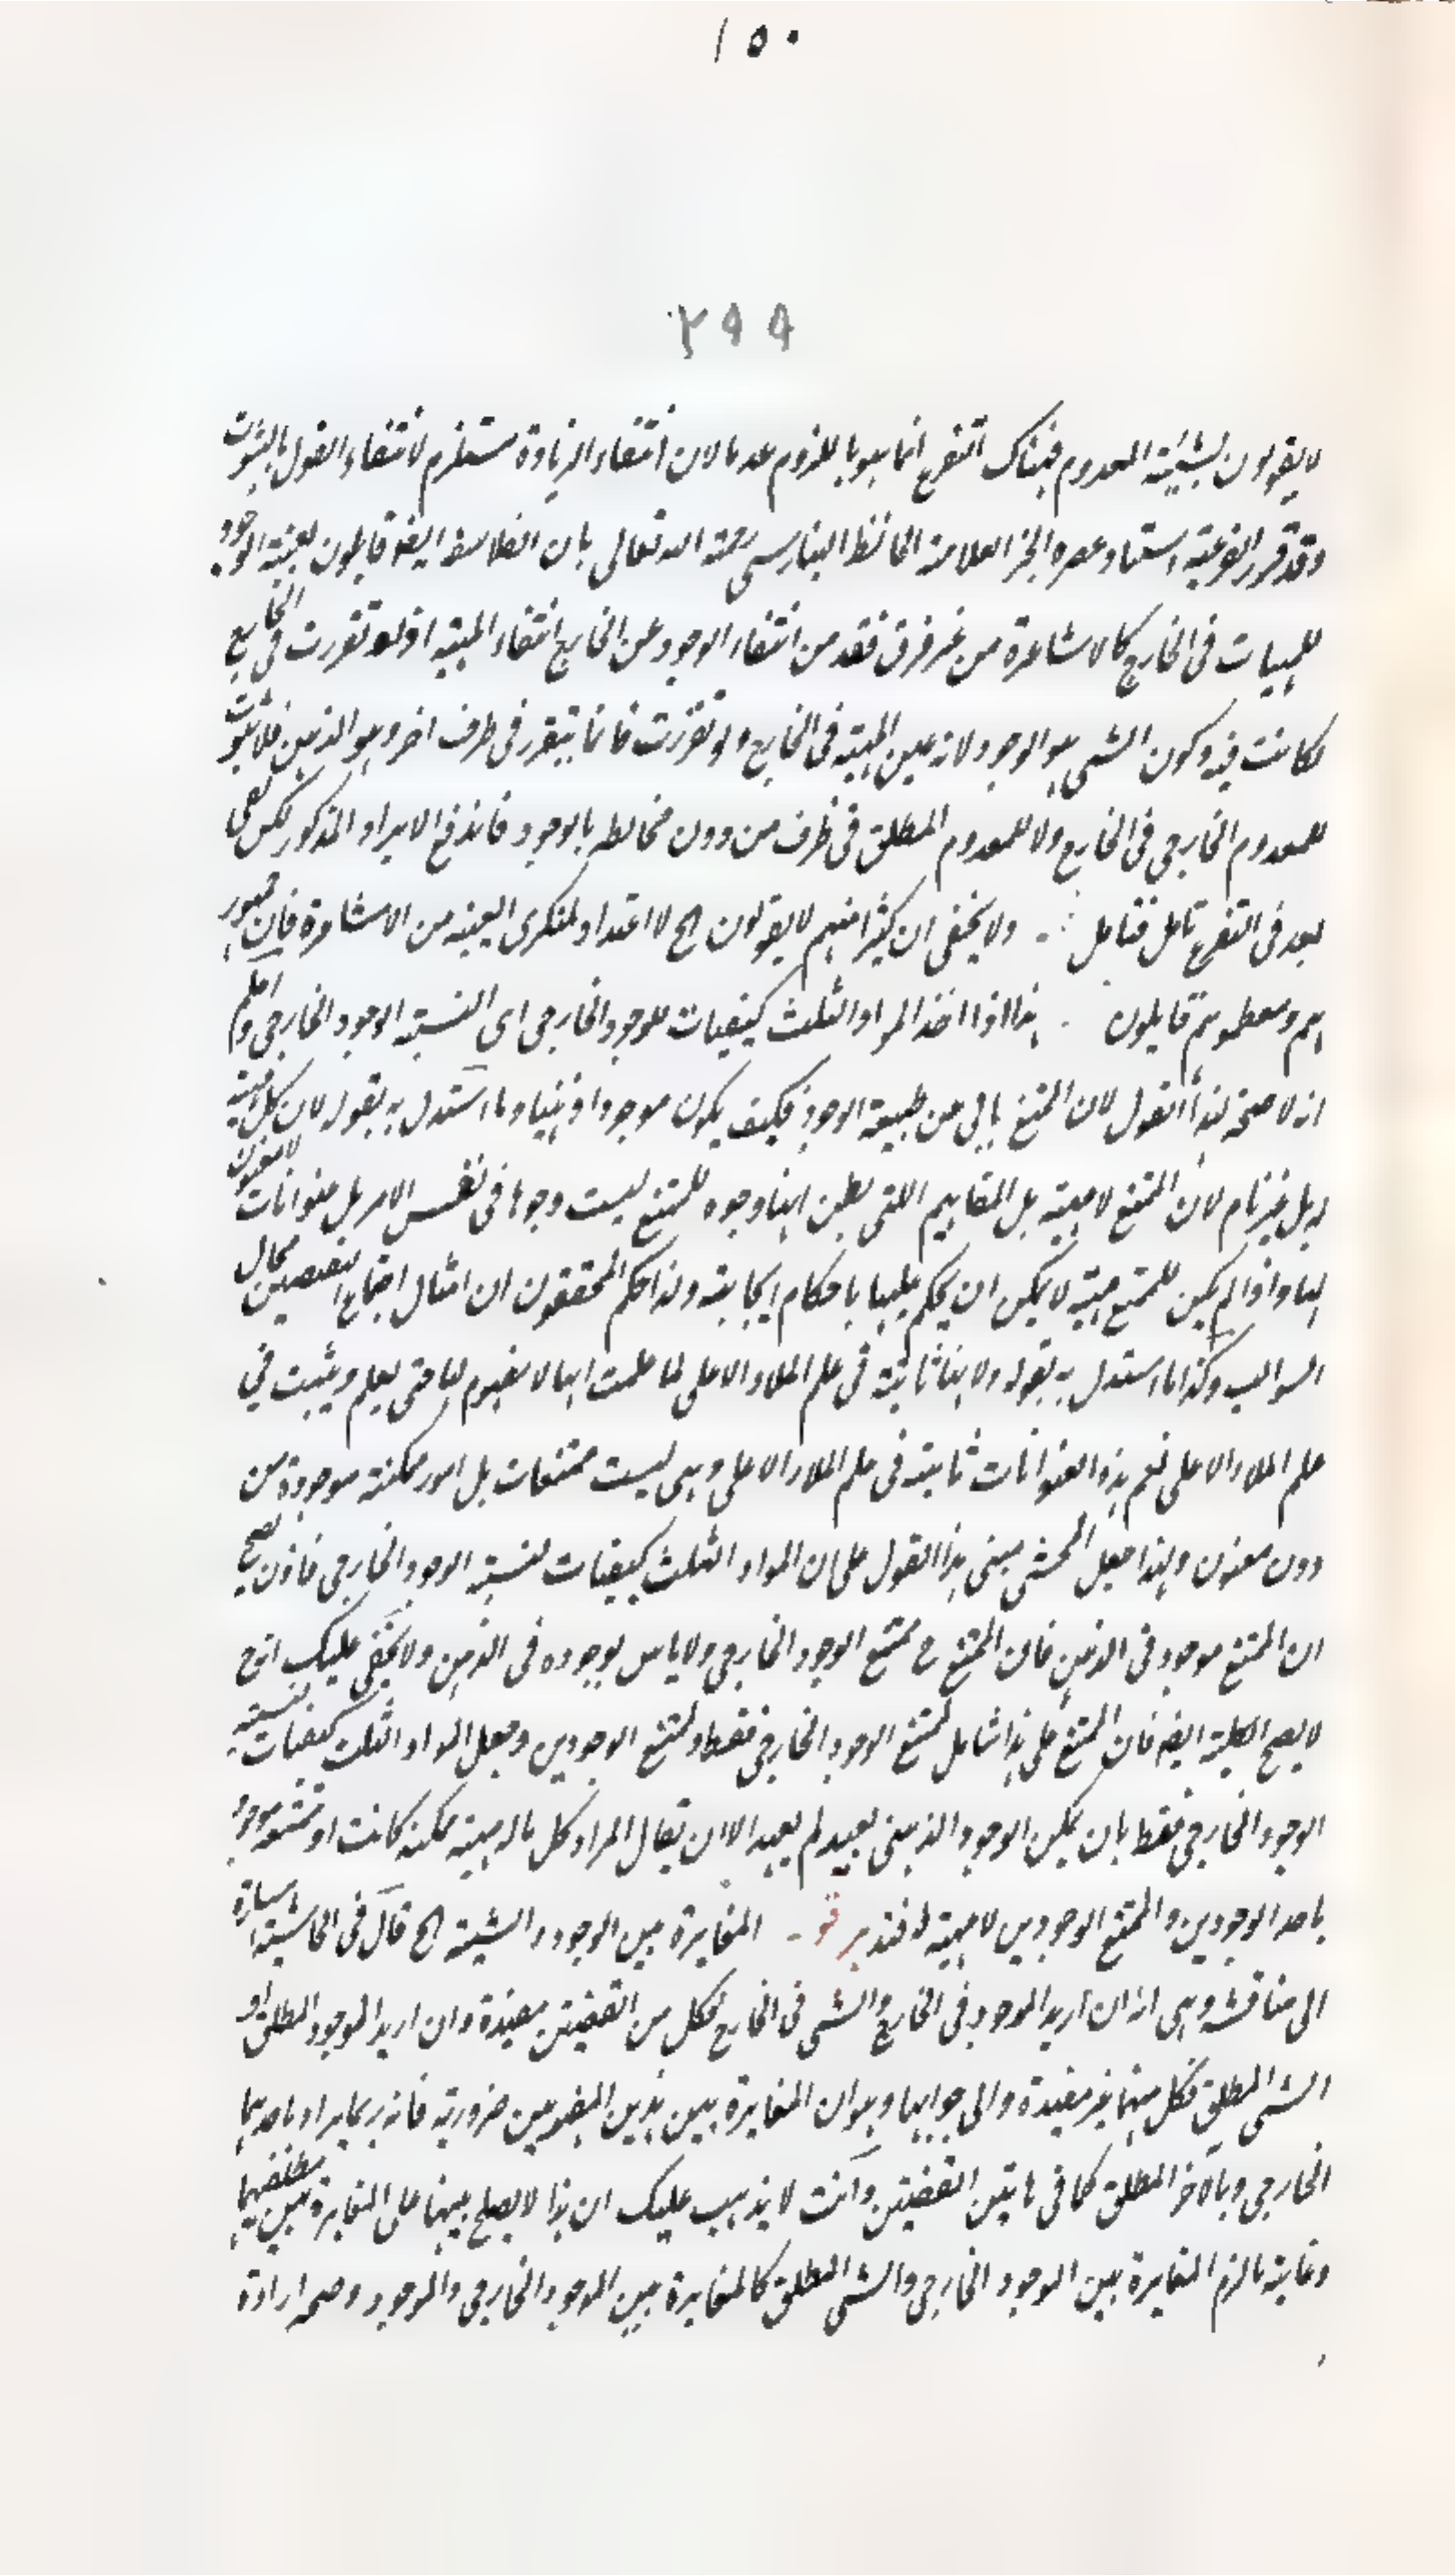 ١٥٠
٢٩٩
لا يقولون بشيئية المعدوم فهناك التفريع انما هو باللزوم عدما لان انتفاء الزيادة مستلزم لانتفاء القول بالثبوت
وقد قرر الفرعية استاد عصره الحبر العلامة الحافظ البنارسي رحمة الله تعالى بان الفلاسفة ايضا قايلون بعينية الوجود
للمهيات في الخارج كالاشاعرة من غير فرق فقد من انتفاء الوجود عن الخارج انتفاء المهية اذ لو تقررت في الخارج
لكانت فيه وكون الشي هو الوجود لانه عين المهية في الخارج ولو تقررت فانما يتقرر في ظرف اخر وهو الذهن فلا ثبوت
للمعدوم الخارجي في الخارج ولا للمعدوم المطلق في ظرف من دون مخالطه بالوجود فاندفع الايراد المذكور لكن بقي
بعد في التفريع تامل فتامل ولا يخفى ان كثيرا منهم لا يقولون الخ لا اعتداد لمنكري العينية من الاشاعرة فان جمهور
هم ومعظموهم قايلون هذا اذا اخذ المواد الثلث كيفيات للوجود الخارجي اي النسبة الوجود الخارجي واعلم
انه لا صحة لهذا القول لان الممتنع يابى من طبيعة الوجود فكيف يكون موجودا ذهنيا وما استدل به بقوله لان كل مهية
لان الممتنع لا مهية بل المفاهيم اللتي يظن انها وجوه للممتنع ليست وجوها في نفس الامر بل عنوانات لا معنون
لها واذا لم يكن للممتنع مهية لا يمكن ان يحكم عليها باحكام ايجابية ولذا حكم المحققون ان امثال اجتماع النقيضين محال
السوالب وكذا ما استدل به بقوله ولانها ثابتة في علم الملاء الاعلى لما علمت انها لا مفهوم لها حتى يعلم ويثبت في
علم الملاء الاعلى نعم هذه العنوانات ثابتة في علم الملاء الاعلى وهي ليست ممتنعات بل امور ممكنة موجودة من
دون معنون ولهذا جعل المحشي مبنى هذا القول على ان المواد الثلث كيفيات لنسبة الوجود الخارجي فاذن يصح
ان الممتنع موجود في الذهن فان الممتنع ح ممتنع الوجود الخارجي ولا باس بوجوده في الذهن ولا يخفى عليك انه ح
لا يصح الكلية ايضا فان الممتنع على هذا شامل لممتنع الوجود الخارجي فقط ولممتنع الوجودين وجعل المواد الثلث كيفيات لنسبة
الوجود الخارجي فقط بان يمكن الوجود الذهني بعيد لم يعهد الا ان يقال المراد كل ماله مهية ممكنة كانت او ممتنعة موجود
باحد الوجودين والممتنع الوجودين لا مهية له فتدبر قو المغايرة بين الوجود والشيئية الخ قال في الحاشية اشارة
الى مناقشة وهي انه ان اريد الموجود في الخارج والشي في الخارج فكل من القضيتين مفيدة وان اريد الموجود المطلق او
الشي المطلق فكل منهما غير مفيدة والى جوابها وهو ان المغايرة بين هذين المفهومين ضرورية فانه ربما يراد باحدهما
الخارجي وبالاخر المطلق كما في هاتين القضيتين وانت لا يذهب عليك ان هذا لا يصلح منبها على المغايرة بين مطلقيهما
وغاية ما لزم المغايرة بين الوجود الخارجي والشي المطلق كالمغايرة بين الوجود الخارجي والموجود وصحة ارادة